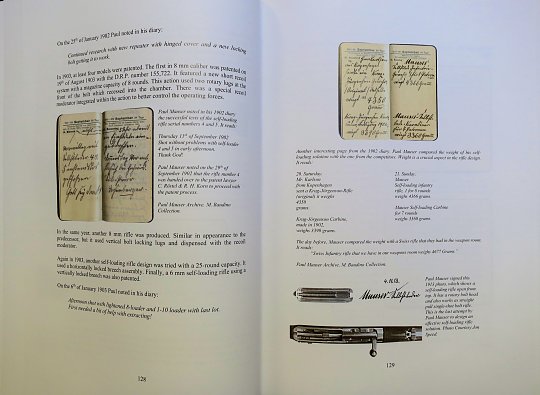 On the 25th of January 1902 Paul noted in his diary:
Continued research with new repeater with hinged cover and a new locking
bolt getting it to work.
In 1903, at least four models were patented. The first in 8 mm caliber was patented on
19th of August 1903 with the D.R.P. number 155,722. It featured a new short recoil
system with a magazine capacity of 8 rounds. This action used two rotary lugs at the
front of the bolt which recessed into the chamber. There was a special recoil
moderator integrated within the action to better control the operating forces.
Paul Mauser noted in his 1902 diary
the successful tests of the self-loading
rifle serial numbers 4 and 3. It reads:
Thursday 11th of September 1902
Shot without problems with self-loader
4 and 3 in early afternoon.
Thank God!
Paul Mauser noted on the 29th of
September 1902 that the rifle number 4
was handed over to the patent lawyer
C. Röstel & R. H. Korn to proceed with
the patent process.
Paul Mauser Archive. M. Baudino
Collection.
In the same year, another 8 mm rifle was produced. Similar in appearance to the
predecessor, but it used vertical bolt locking lugs and dispensed with the recoil
moderator.
Again in 1903, another self-loading rifle design was tried with a 25-round capacity. It
used a horizontally locked breech assembly. Finally, a 6 mm self-loading rifle using a
vertically locked breech was also patented.
On the 6th of January 1903 Paul noted in his diary:
Afternoon shot with lightened 8-loader and 1-10 loader with last lot.
First needed a bit of help with extracting!
128
Another interesting page from the 1902 diary. Paul Mauser compared the weight of his self-
loading solution with the one from the competitors. Weight is a crucial aspect in the rifle design.
It reads:
20. Saturday.
Mr. Karlson
from Kopenhagen
sent a Krag-Jörgenson-Rifle
(original) it weighs
4350
grams
Krag-Jörgenson Carbine,
made in 1902,
weighs 3390 grams.
21. Sunday.
Mauser
Self-loading infantry
rifle, 1 for 8 rounds
weighs 4366 grams
Mauser Self-loading Carbine
for 7 rounds
weighs 3360 grams.
The day before, Mauser compared the weight with a Swiss rifle that they had in the weapon room.
It reads:
"Swiss Infantry rifle that we have in our weapon room weighs 4677 Grams."
Paul Mauser Archive. M. Baudino Collection.
Paul Mauser signed this
1913 photo, which shows a
self-loading rifle open from
top. It has a rotary bolt head
and also works as straight
pull single-shot bolt rifle.
This is the last attempt by
Paul Mauser to design an
effective self-loading rifle
solution. Photo Courtesy Jon
Speed.
129